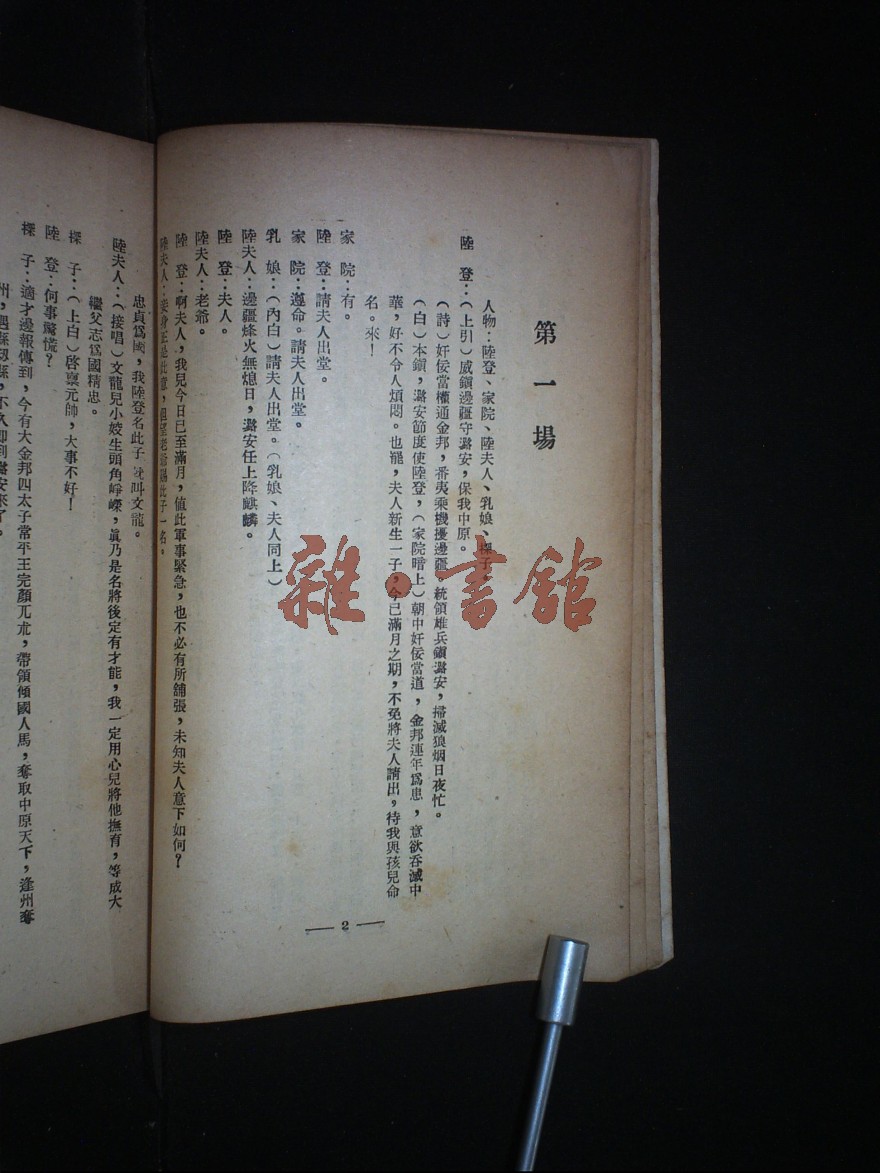 第一場
人物：陸登、家院、陸夫人、乳娘、探子。
陸　登：（上引）威鎭邊疆守潞安，保我中原。
（詩）奸佞當權通金邦，番夷乘機擾邊疆，統領雄兵鎭潞安，掃滅狼烟日夜忙。
（白）本鎭，潞安節度使陸登，（家院暗上）朝中奸佞當道，金邦連年爲患，意欲吞滅中
華，好不令人煩悶。也罷，夫人新生一子，今已滿月之期，不免將夫人請出，待我與孩兒命
名。來！
家　院：有。
陸　登：請夫人出堂。
家　院：遵命。請夫人出堂。
乳　娘：（內白）請夫人出堂。（乳娘、夫人同上）
陸夫人：邊疆烽火無熄日，潞安任上降麒麟。
陸　登：夫人。
陸夫人：老爺。
陸　登：啊夫人，我兒今日已至滿月，值此軍事緊急，也不必有所舖張，未知夫人意下如何？
陸夫人：妾身正是此意，還望老爺賜此子一名。
2
忠貞爲國，我陸登名此子就叫文龍。
陸夫人：（接唱）文龍兒小姣生頭角崢嶸，眞乃是名將後定有才能，我一定用心兒將他撫育，等成大
繼父志爲國精忠。
探　子：（上白）啓禀元帥，大事不好！
陸　登：何事驚慌？
探　子：適才邊報傳到，今有大金邦四太子常平王完顏兀朮，帶領傾國人馬，奪取中原天下，逢州奪
州，遇縣刼縣，不久即到潞安來了。
雜·書館